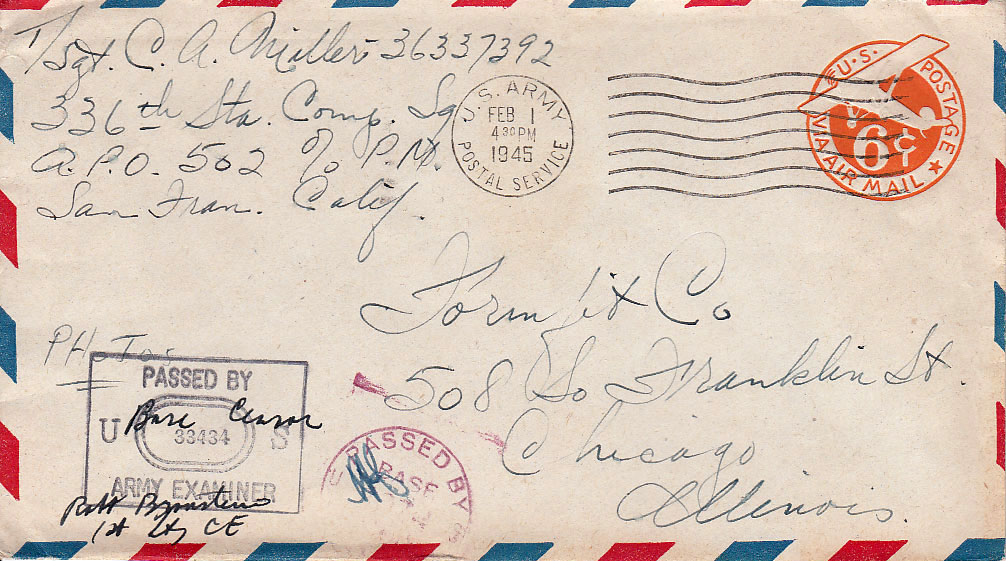 T/Sgt. C. A. Miller 36337392
336th Sta. Comp. Sq
A.P.O. 502 c/o P.M.
San Fran. Calif.
U.S. ARMY
FEB 1
4 30 PM
1945
POSTAL SERVICE
U.S. POSTAGE
6¢
VIA AIR MAIL
Formfit Co
508 So Franklin St.
Chicago
Illinois.
PHOTOS
PASSED BY
Base Censor
U 33434 S
ARMY EXAMINER
1st Lt, CE
PASSED BY
BASE